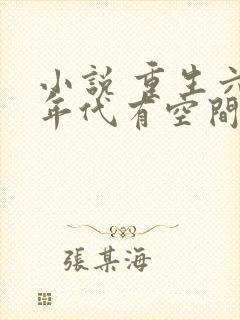 小說 重生六
年代有空間
張某海